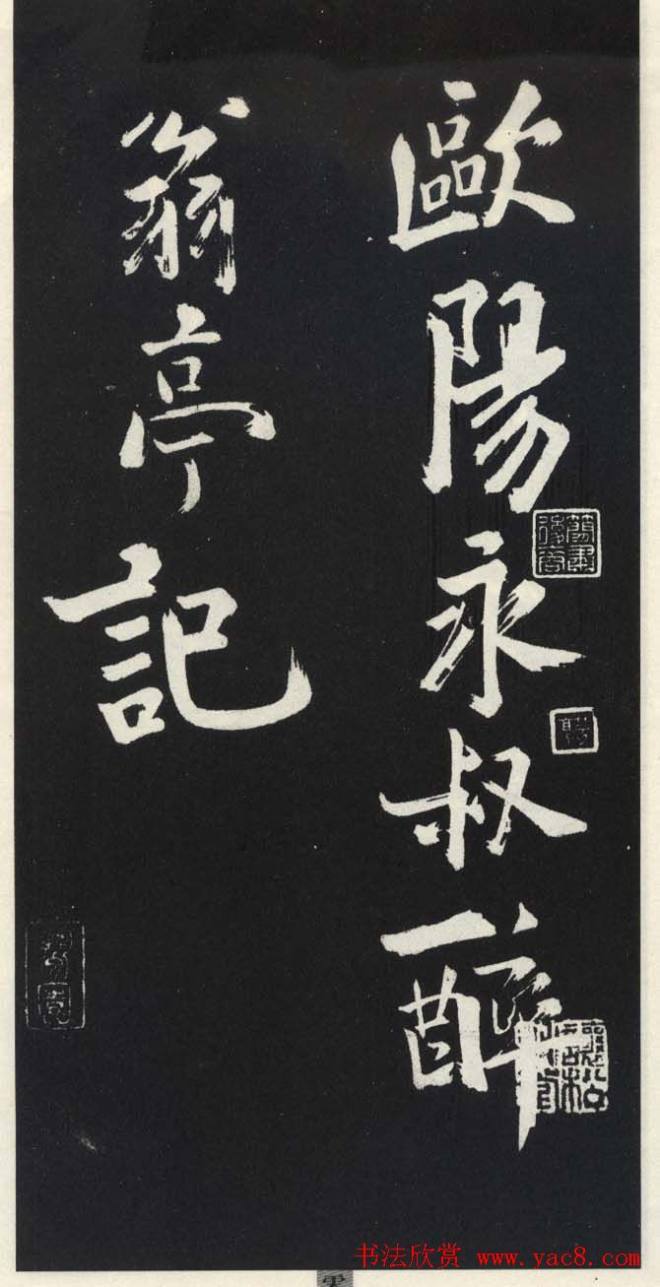 歐陽永叔醉
翁亭記
书法欣赏 www.yac8.com